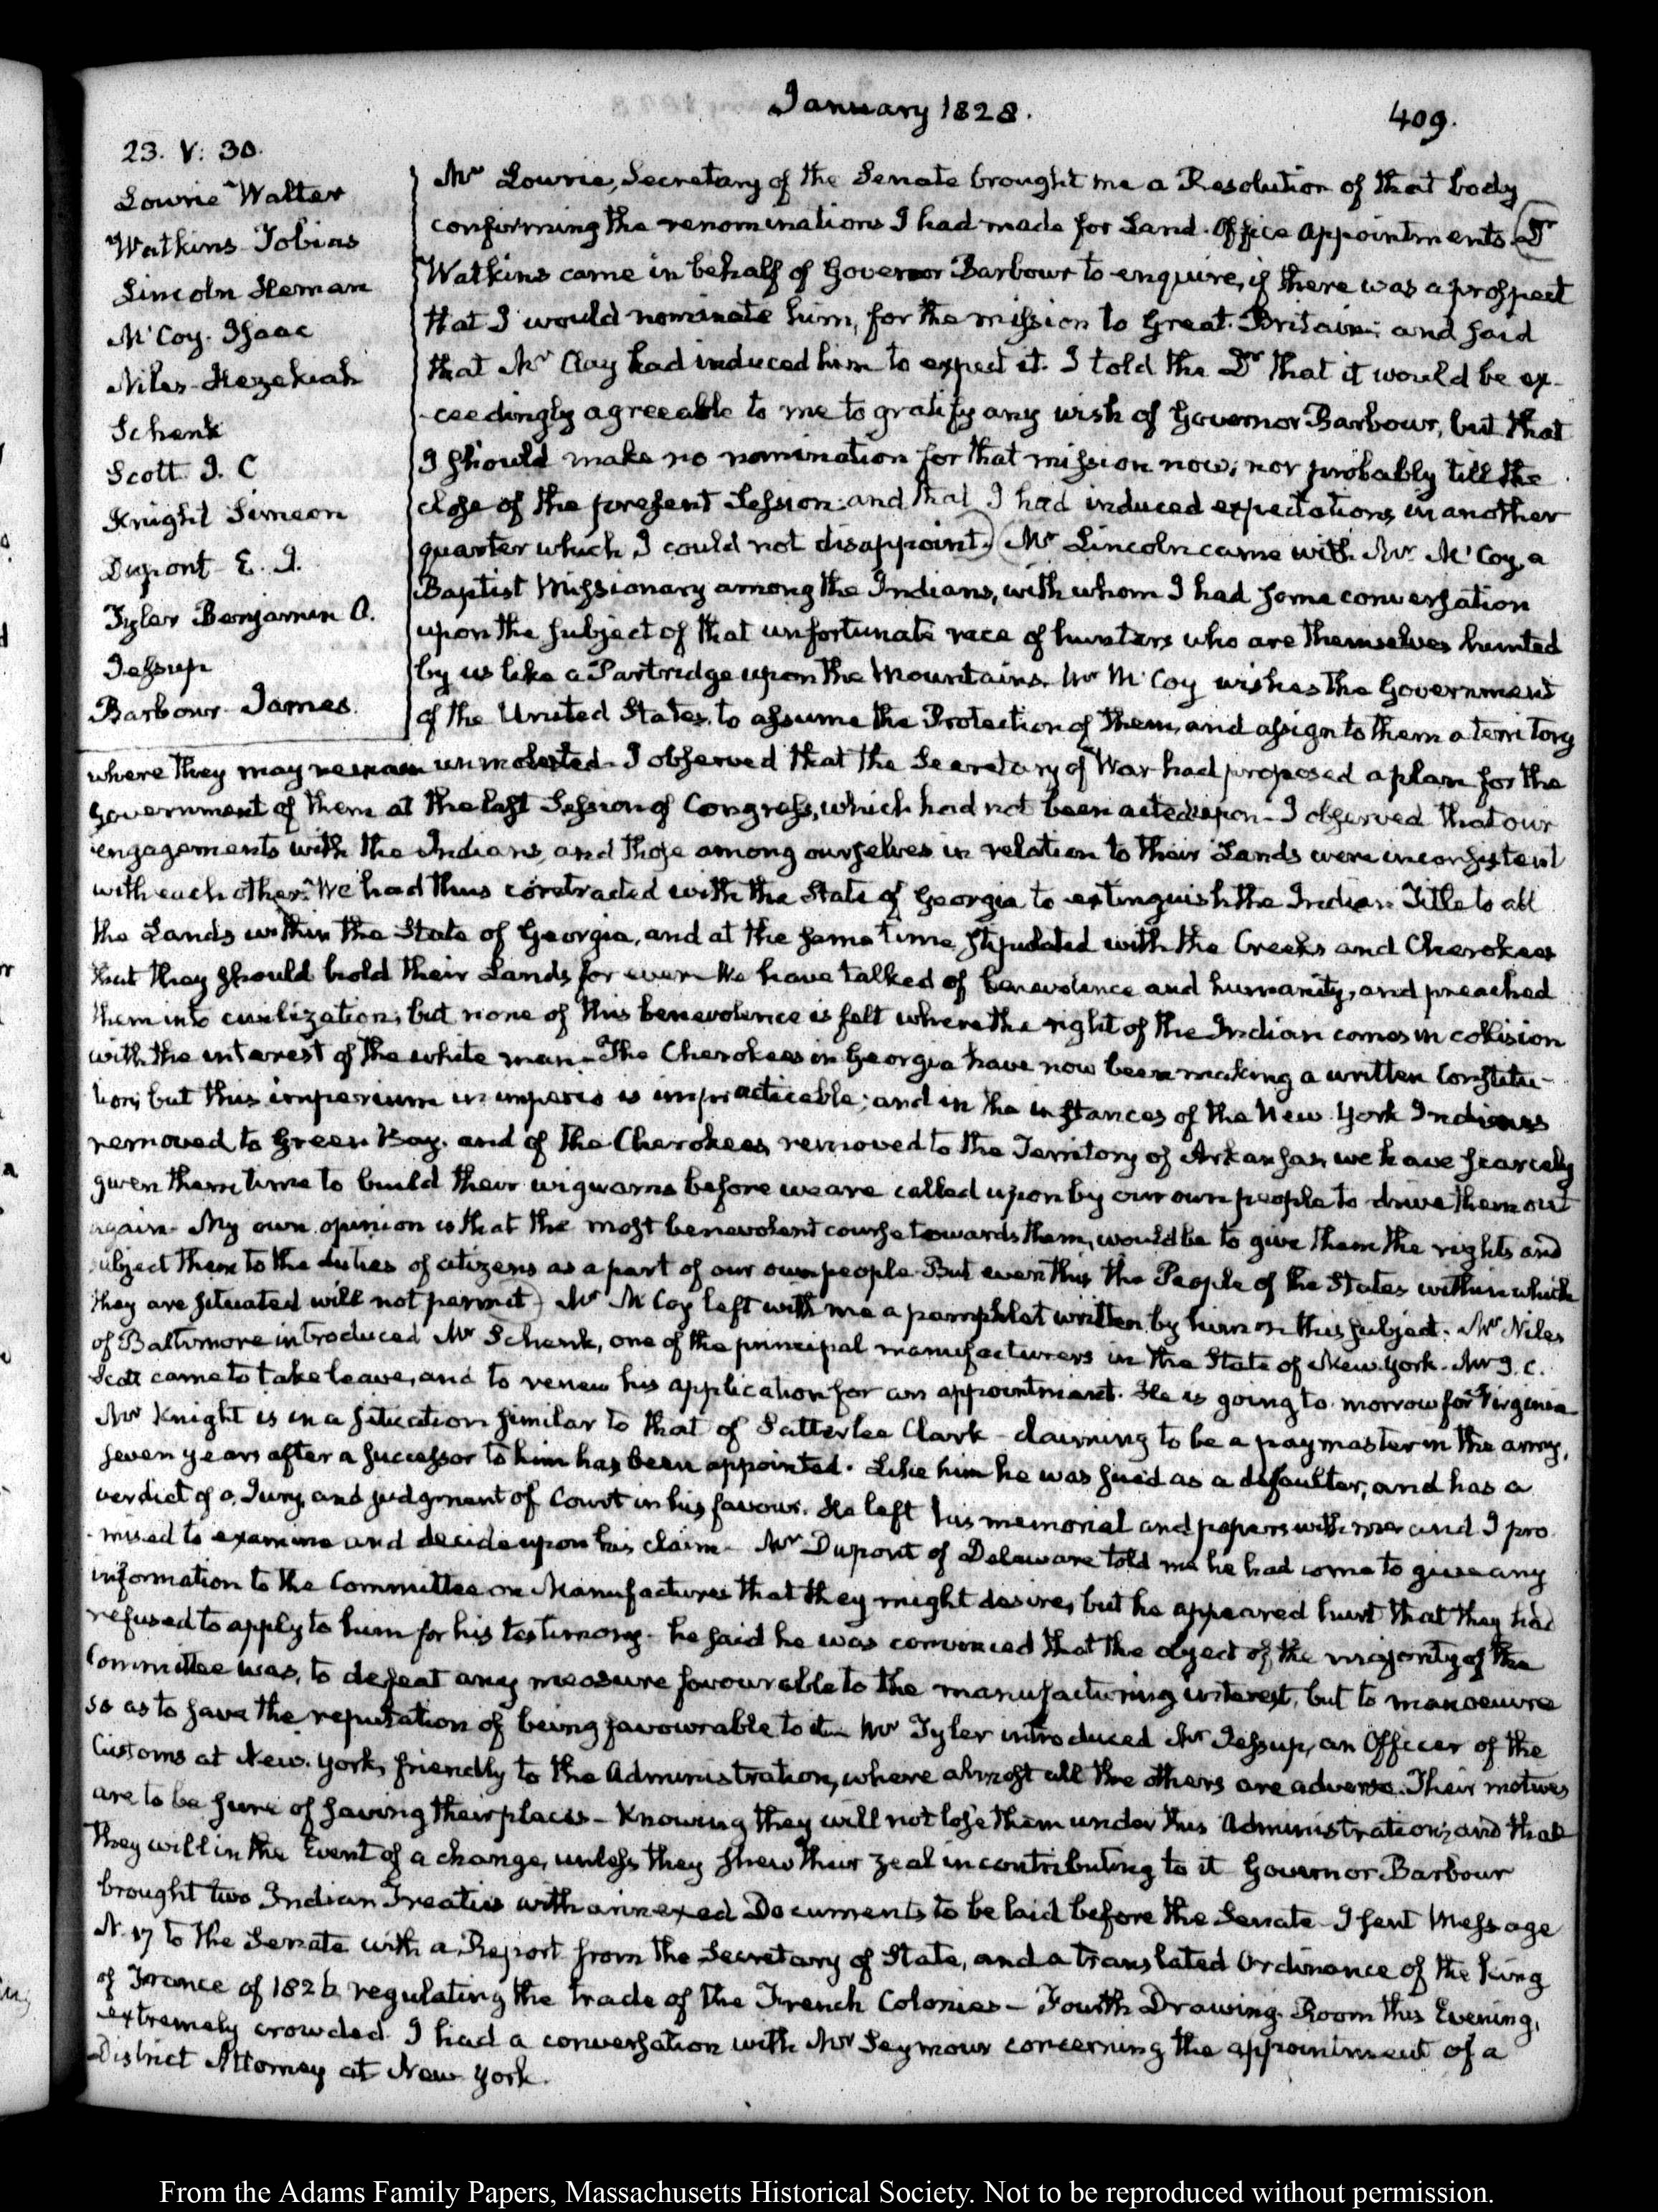 January 1828.
409.
23. V: 30.
Lowrie Walter
Watkins Tobias
Lincoln Heman
McCoy. Isaac
Niles Hezekiah
Schenk
Scott J. C
Knight Simeon
Dupont E. I.
Tyler Benjamin O.
Jessup
Barbour James.
Mr Lowrie, Secretary of the Senate brought me a Resolution of that body
confirming the renominations I had made for Land-Office appointments. Dr
Watkins came in behalf of Governor Barbour to enquire, if there was a prospect
that I would nominate him, for the mission to Great-Britain; and said
that Mr Clay had induced him to expect it. I told the Dr that it would be ex-
-ceedingly agreeable to me to gratify any wish of Governor Barbour, but that
I should make no nomination for that mission now; nor probably till the
close of the present Session: and that I had induced expectations in another
quarter which I could not disappoint. Mr Lincoln came with Mr McCoy, a
Baptist Missionary among the Indians, with whom I had some conversation
upon the subject of that unfortunate race of hunters who are themselves hunted
by us like a Partridge upon the Mountains. Mr McCoy wishes the Government
of the United States, to assume the Protection of them, and assign to them a territory
where they may remain unmolested. I observed that the Secretary of War had proposed a plan for the
Government of them at the last Session of Congress, which had not been acted upon. I observed that our
engagements with the Indians, and those among ourselves in relation to their Lands were inconsistent
with each other. We had thus contracted with the State of Georgia to extinguish the Indian Title to all
the Lands within the State of Georgia, and at the same time stipulated with the Creeks and Cherokees
that they should hold their Lands for ever. We have talked of benevolence and humanity, and preached
them into civilization; but none of this benevolence is felt where the right of the Indian comes in collision
with the interest of the white man. The Cherokees in Georgia have now been making a written Constitu-
tion; but this imperium in imperio is impracticable; and in the instances of the New York Indians
removed to Green Bay, and of the Cherokees removed to the Territory of Arkansas, we have scarcely
given them time to build their wigwams before we are called upon by our own people to drive them out
again. My own opinion is that the most benevolent course towards them, would be to give them the rights and
subject them to the duties of citizens as a part of our own people. But even this the People of the States within which
they are situated will not permit. Mr McCoy left with me a pamphlet written by him on this subject. Mr Niles
of Baltimore introduced Mr Schenk, one of the principal manufacturers in the State of New York. Mr J. C.
Scott came to take leave, and to renew his application for an appointment. He is going to-morrow for Virginia
Mr Knight is in a situation similar to that of Satterlee Clark - claiming to be a paymaster in the army,
seven years after a successor to him has been appointed. Like him he was sued as a defaulter, and has a
verdict of a Jury, and judgment of Court in his favour. He left his memorial and papers with me and I pro-
-mised to examine and decide upon his claim. Mr Dupont of Delaware told me he had come to give any
information to the Committee on Manufactures that they might desire, but he appeared hurt that they had
refused to apply to him for his testimony. he said he was convinced that the object of the majority of the
Committee was, to defeat any measure favourable to the manufacturing interest, but to manoeuvre
so as to save the reputation of being favourable to it. Mr Tyler introduced Mr Jessup, an Officer of the
Customs at New-York, friendly to the Administration, where almost all the others are adverse. Their motives
are to be sure of saving their places - Knowing they will not lose them under this Administration; and that
they will in the Event of a change, unless they shew their zeal in contributing to it. Governor Barbour
brought two Indian Treaties with annexed Documents to be laid before the Senate. I sent Message
N. 17 to the Senate with a Report from the Secretary of State, and a translated Ordinance of the King
of France of 1826 regulating the trade of the French Colonies - Fourth Drawing-Room this Evening,
extremely crowded. I had a conversation with Mr Seymour concerning the appointment of a
District Attorney at New York.
From the Adams Family Papers, Massachusetts Historical Society. Not to be reproduced without permission.